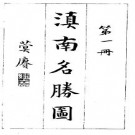 第一冊
滇南名勝圖